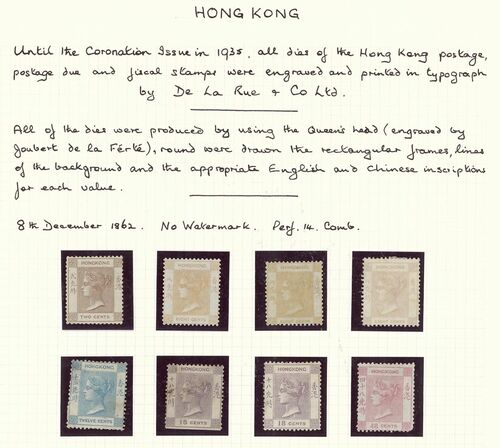 HONG KONG
Until the Coronation Issue in 1935, all dies of the Hong Kong postage,
postage due and fiscal stamps were engraved and printed in typograph
by De La Rue & Co Ltd.
All of the dies were produced by using the Queen's head (engraved by
Joubert de la Férté), round were drawn the rectangular frames, lines
of the background and the appropriate English and Chinese inscriptions
for each value.
8th December 1862. No Watermark. Perf. 14. Comb.
HONGKONG
TWO CENTS
HONGKONG
EIGHT CENTS
HONGKONG
HONGKONG
HONGKONG
TWELVE CENTS
HONGKONG
18 CENTS
HONGKONG
18 CENTS
HONGKONG
CENTS
香港